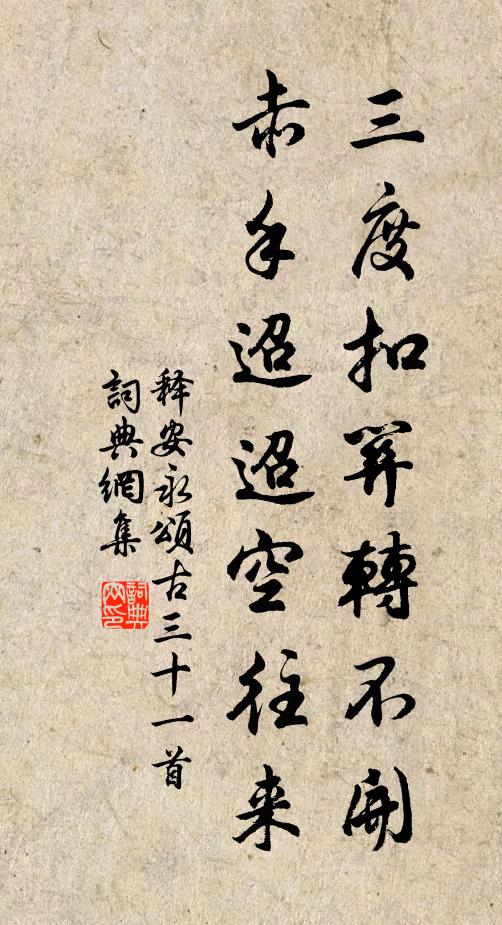 三度扣关轉不開
赤手迢迢空往来
释安永頌古三十一首
詞典網集
詞典网印